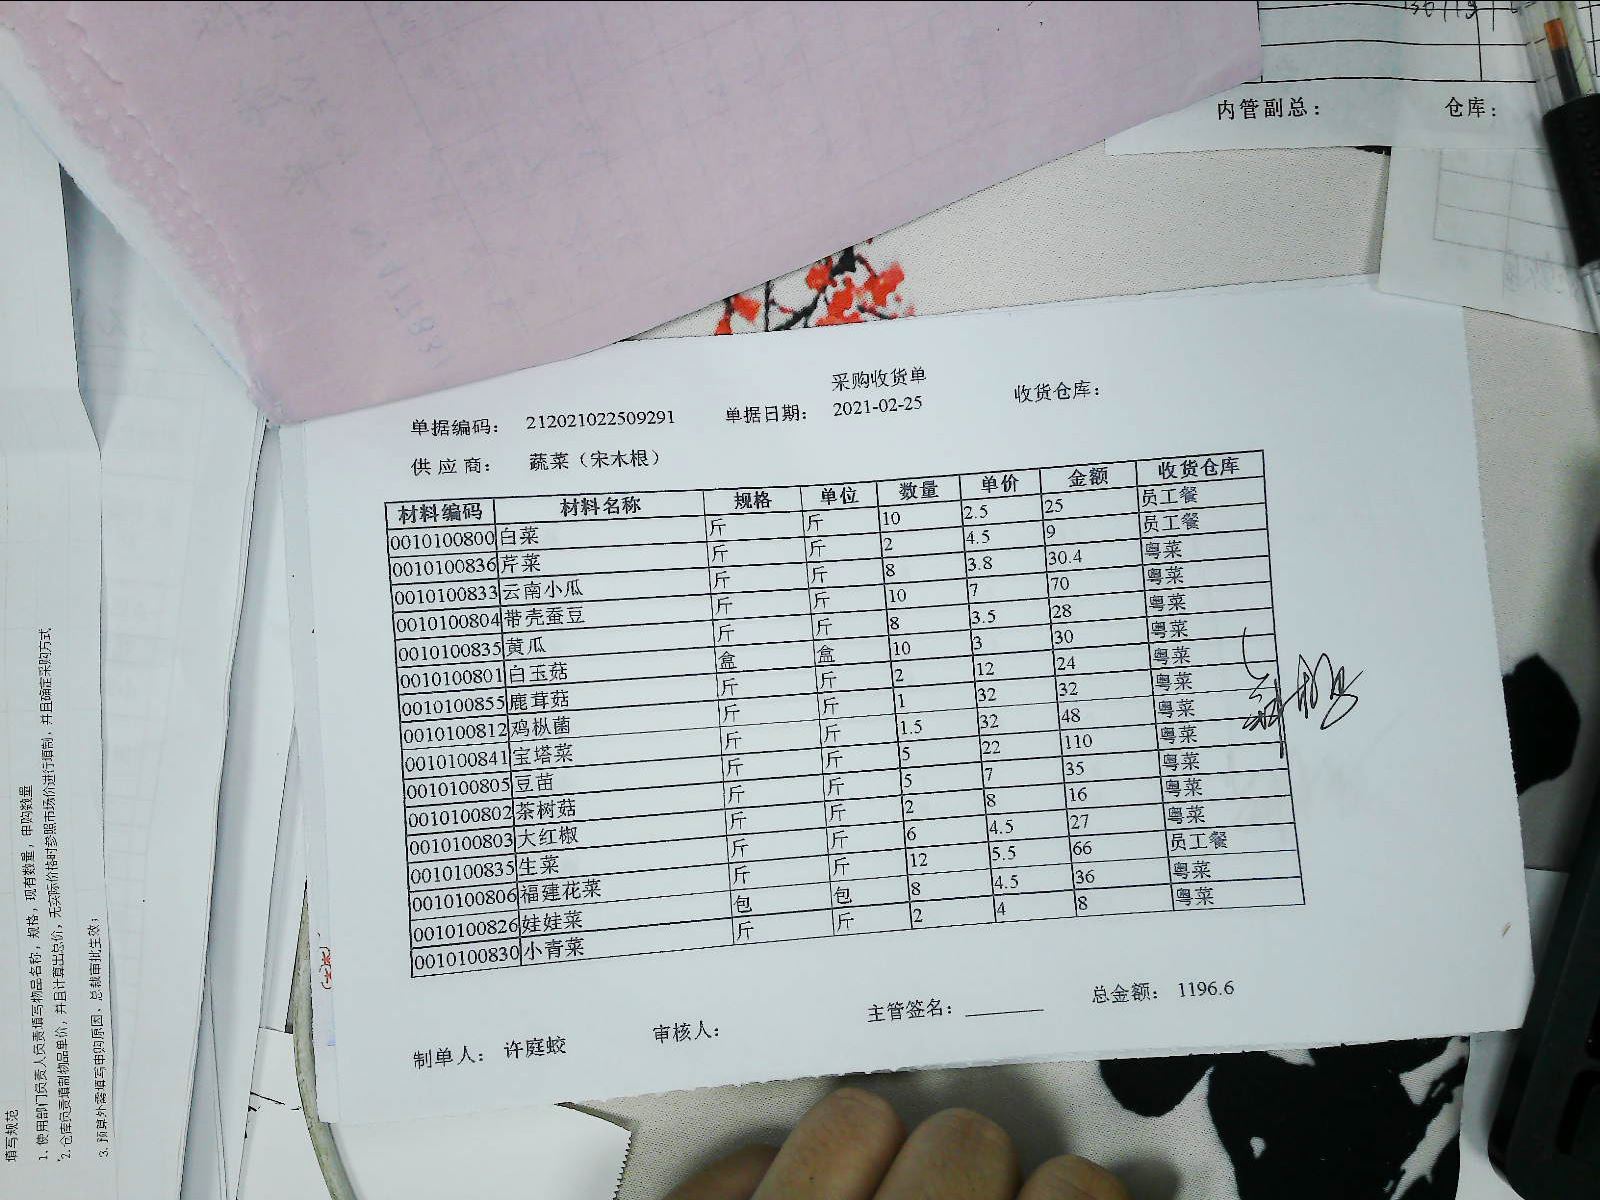 内管副总： 仓库：
采购收货单
单据编码： 212021022509291 单据日期： 2021-02-25 收货仓库：
供 应 商： 蔬菜（宋木根）
材料编码 材料名称 规格 单位 数量 单价 金额 收货仓库
0010100800 白菜 斤 斤 10 2.5 25 员工餐
0010100836 芹菜 斤 斤 2 4.5 9 员工餐
0010100833 云南小瓜 斤 斤 8 3.8 30.4 粤菜
0010100804 带壳蚕豆 斤 斤 10 7 70 粤菜
0010100835 黄瓜 斤 斤 8 3.5 28 粤菜
0010100801 白玉菇 盒 盒 10 3 30 粤菜
0010100855 鹿茸菇 斤 斤 2 12 24 粤菜
0010100812 鸡枞菌 斤 斤 1 32 32 粤菜
0010100841 宝塔菜 斤 斤 1.5 32 48 粤菜
0010100805 豆苗 斤 斤 5 22 110 粤菜
0010100802 茶树菇 斤 斤 5 7 35 粤菜
0010100803 大红椒 斤 斤 2 8 16 粤菜
0010100835 生菜 斤 斤 6 4.5 27 粤菜
0010100806 福建花菜 斤 斤 12 5.5 66 员工餐
0010100826 娃娃菜 包 包 8 4.5 36 粤菜
0010100830 小青菜 斤 斤 2 4 8 粤菜
制单人： 许庭蛟 审核人： 主管签名：______ 总金额： 1196.6
填写规范
1、使用部门负责人负责填写物品名称，规格，现有数量，申购数量
2、仓库负责填制物品单价，并且计算出总价，无实际价格时参照市场价进行填制，并且确定采购方式
3、预算外需填写申购原因，总裁审批生效；